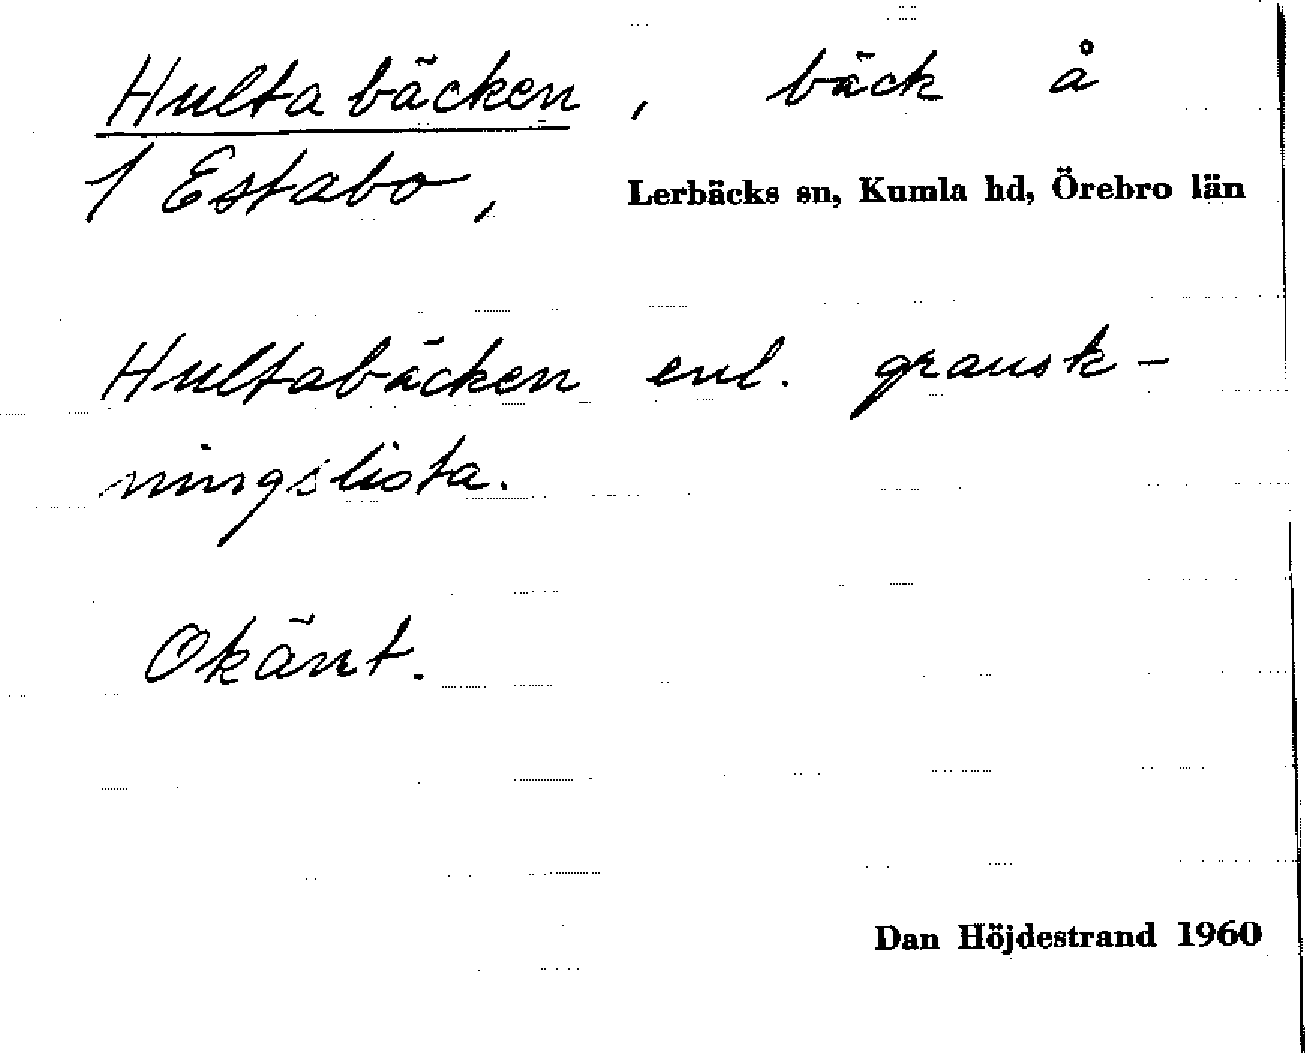 Hultabäcken, bäck å
1 Estabo, Lerbäcks sn, Kumla hd, Örebro län
Hultabäcken enl. gransk-
ningslista.
Okänt.
Dan Höjdestrand 1960